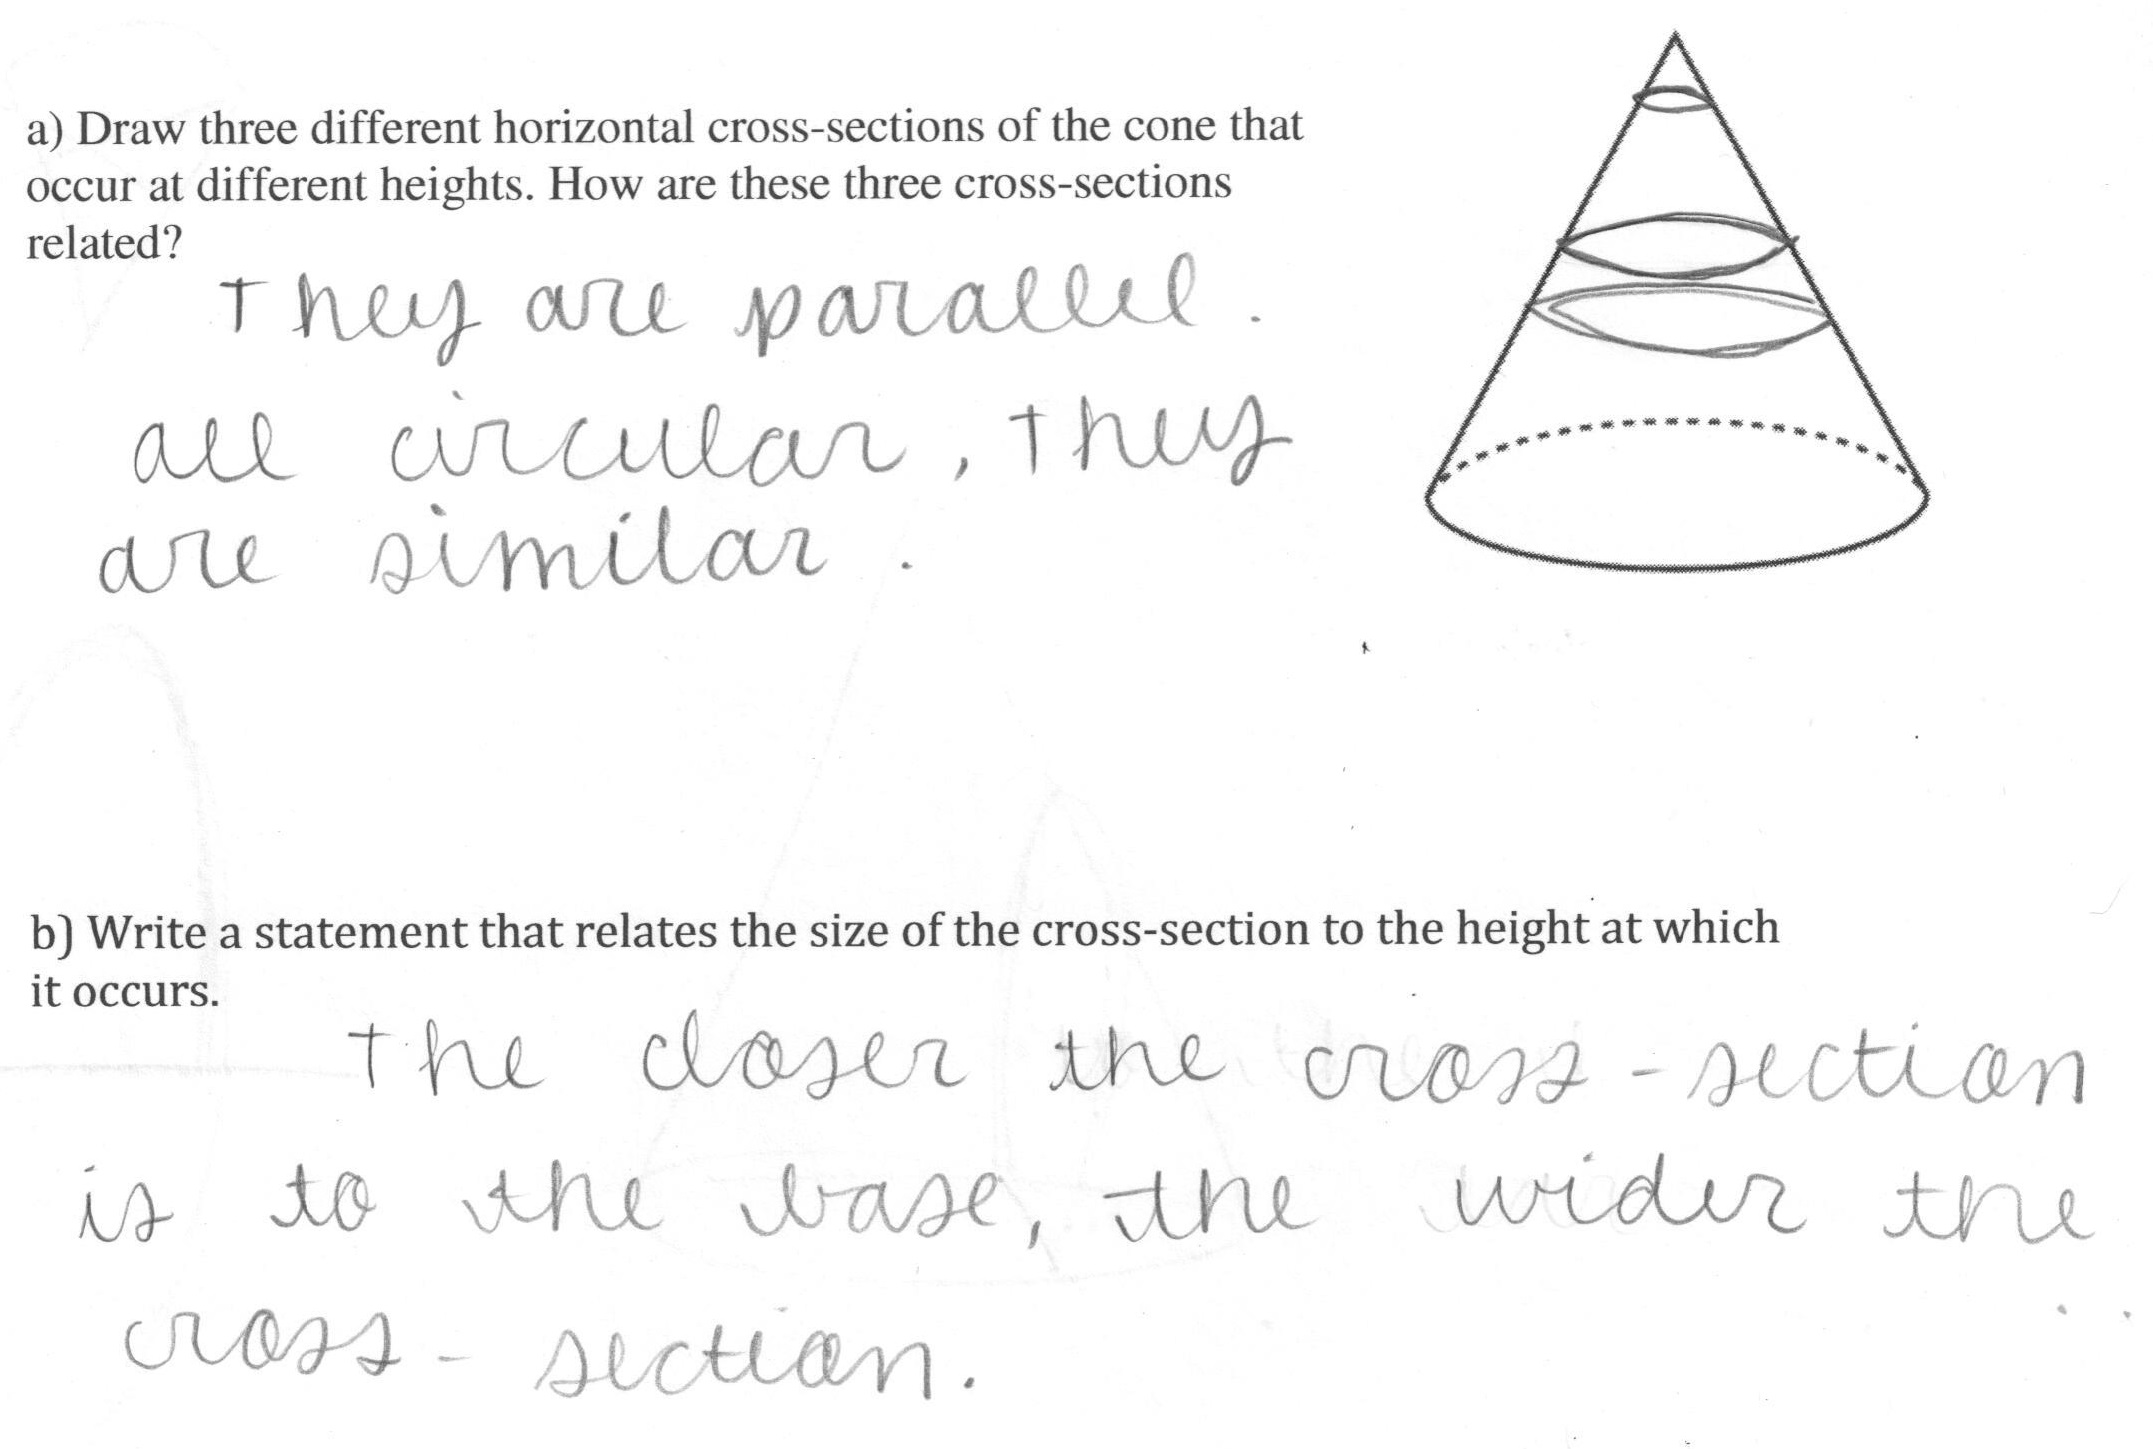 a) Draw three different horizontal cross-sections of the cone that
occur at different heights. How are these three cross-sections
related?
They are parallel.
all circular, they
are similar.
b) Write a statement that relates the size of the cross-section to the height at which
it occurs.
The closer the cross-section
is to the base, the wider the
cross-section.